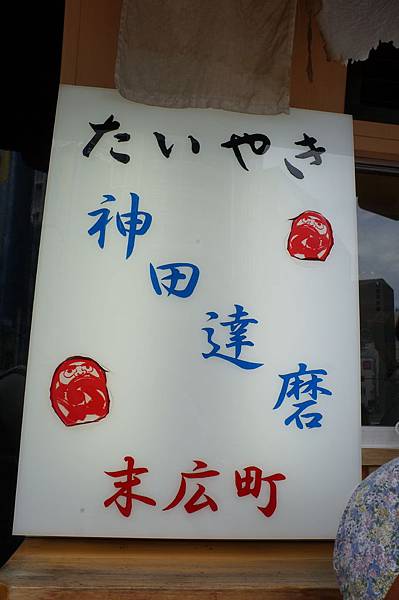 たいやき
神田達磨
末広町